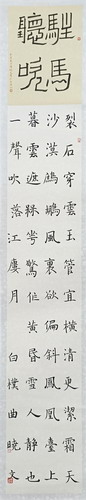 駐馬
聽吹
裂石穿雲玉管宜橫清更潔霜天
沙漠鷓鴣風裏欲偏斜鳳凰臺上
暮雲遮梅花驚作黃昏雪人靜也
一聲吹落江廔月 白樸曲 曉文